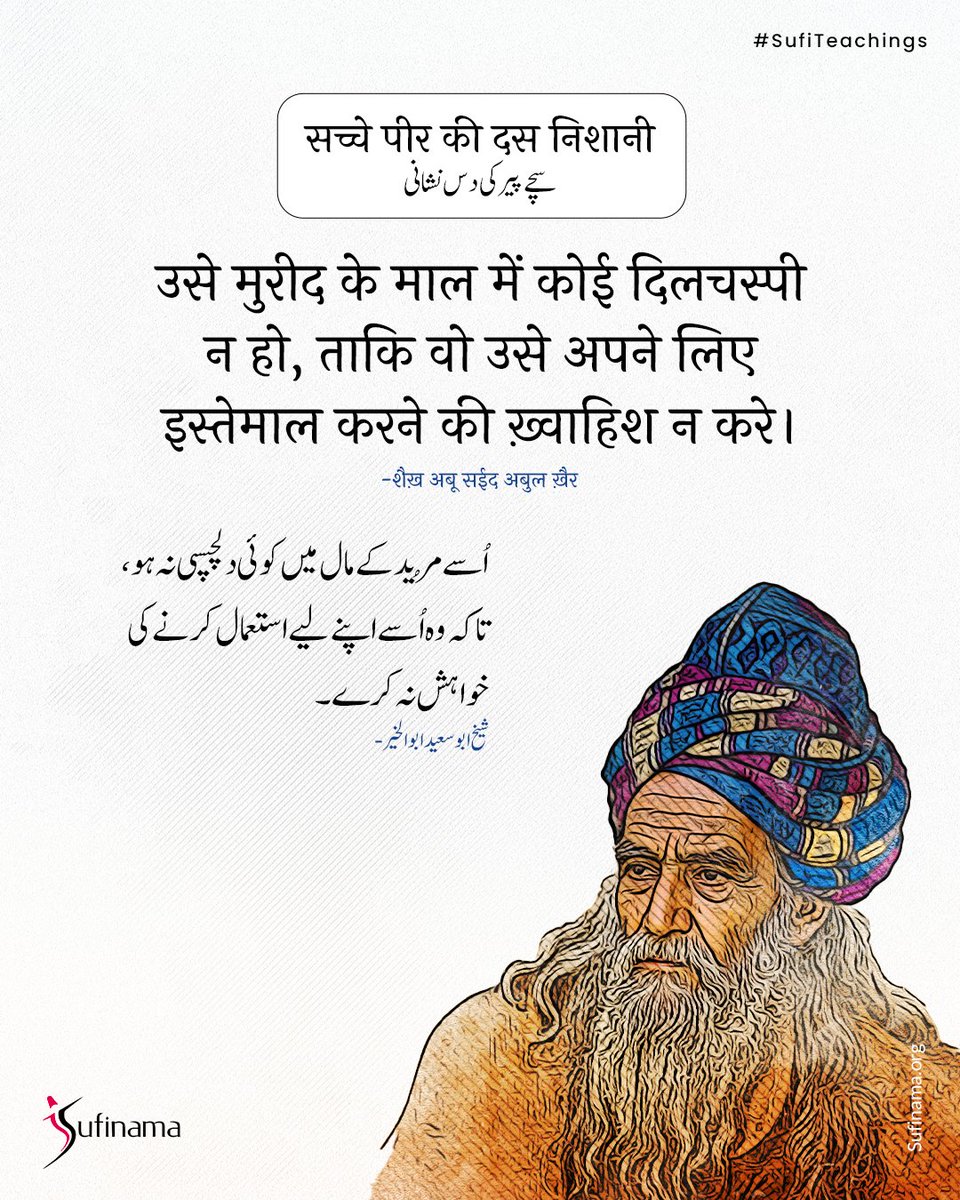 #SufiTeachings
सच्चे पीर की दस निशानी
سچے پیر کی دس نشانی
उसे मुरीद के माल में कोई दिलचस्पी
न हो, ताकि वो उसे अपने लिए
इस्तेमाल करने की ख़्वाहिश न करे।
-शैख़ अबू सईद अबुल ख़ैर
اُسے مرُید کے مال میں کوئی دلچسپی نہ ہو،
تاکہ وہ اُسے اپنے لیے استعمال کرنے کی
خواہش نہ کرے۔
شیخ ابو سعید ابوالخیر-
Sufinama
Sufinama.org